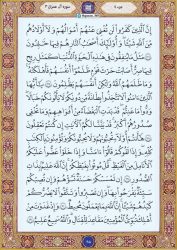 جزء ۴
سوره آل عمران ۳
إِنَّ الَّذِينَ كَفَرُوا لَن تُغْنِيَ عَنْهُمْ أَمْوَالُهُمْ وَلَا أَوْلَادُهُم
مِّنَ اللَّهِ شَيْئًا وَأُولَٰئِكَ أَصْحَابُ النَّارِ هُمْ فِيهَا خَالِدُونَ
مَثَلُ مَا يُنفِقُونَ فِي هَٰذِهِ الْحَيَاةِ الدُّنْيَا كَمَثَلِ رِيحٍ
فِيهَا صِرٌّ أَصَابَتْ حَرْثَ قَوْمٍ ظَلَمُوا أَنفُسَهُمْ فَأَهْلَكَتْهُ
وَمَا ظَلَمَهُمُ اللَّهُ وَلَٰكِنْ أَنفُسَهُمْ يَظْلِمُونَ يَا أَيُّهَا
الَّذِينَ آمَنُوا لَا تَتَّخِذُوا بِطَانَةً مِّن دُونِكُمْ لَا يَأْلُونَكُمْ خَبَالًا
وَدُّوا مَا عَنِتُّمْ قَدْ بَدَتِ الْبَغْضَاءُ مِنْ أَفْوَاهِهِمْ وَمَا تُخْفِي
صُدُورُهُمْ أَكْبَرُ قَدْ بَيَّنَّا لَكُمُ الْآيَاتِ إِن كُنتُمْ تَعْقِلُونَ
هَا أَنتُمْ أُولَاءِ تُحِبُّونَهُمْ وَلَا يُحِبُّونَكُمْ وَتُؤْمِنُونَ بِالْكِتَابِ كُلِّهِ
وَإِذَا لَقُوكُمْ قَالُوا آمَنَّا وَإِذَا خَلَوْا عَضُّوا عَلَيْكُمُ الْأَنَامِلَ
مِنَ الْغَيْظِ قُلْ مُوتُوا بِغَيْظِكُمْ إِنَّ اللَّهَ عَلِيمٌ بِذَاتِ الصُّدُورِ
إِن تَمْسَسْكُمْ حَسَنَةٌ تَسُؤْهُمْ وَإِن تُصِبْكُمْ سَيِّئَةٌ
يَفْرَحُوا بِهَا وَإِن تَصْبِرُوا وَتَتَّقُوا لَا يَضُرُّكُمْ كَيْدُهُمْ
شَيْئًا إِنَّ اللَّهَ بِمَا يَعْمَلُونَ مُحِيطٌ وَإِذْ غَدَوْتَ مِنْ
أَهْلِكَ تُبَوِّئُ الْمُؤْمِنِينَ مَقَاعِدَ لِلْقِتَالِ وَاللَّهُ سَمِيعٌ عَلِيمٌ